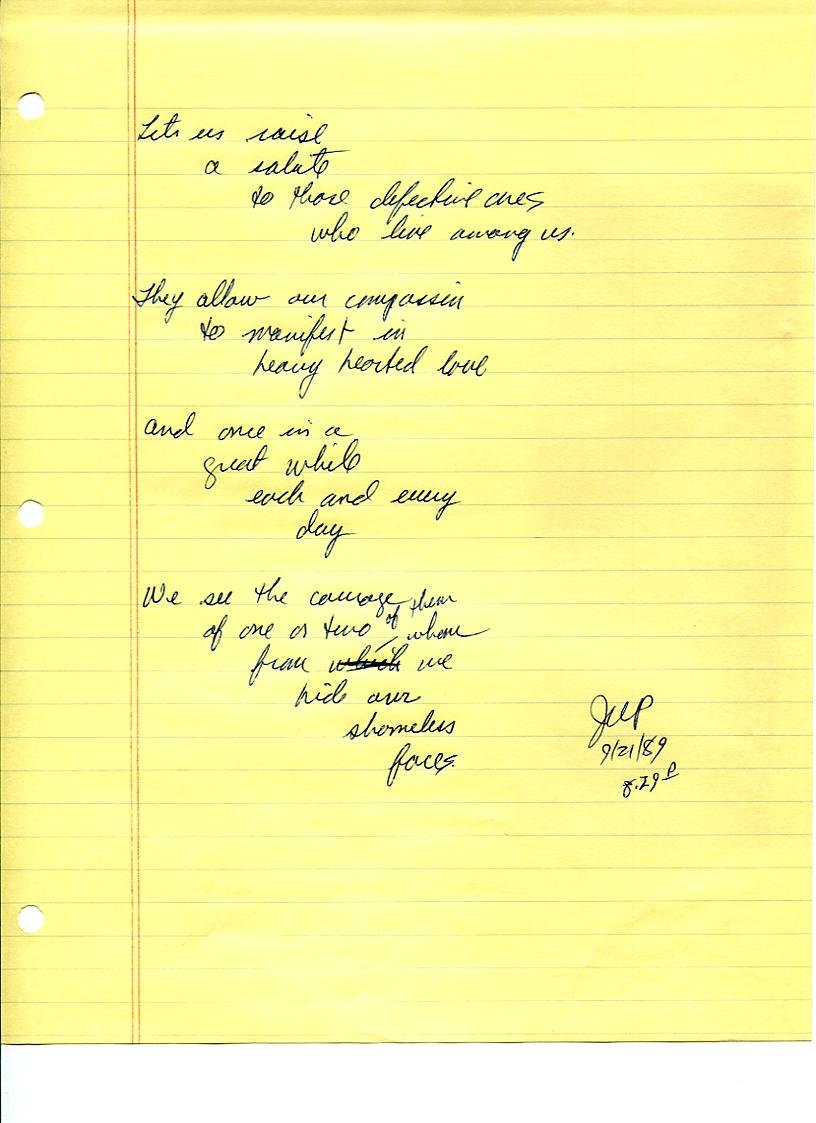 Lets us raise
a salute
to those defective ones
who live among us.
They allow our compassin
to manifest in
heavy hearted love
and once in a
great while
each and every
day
We see the courage
of one or two of them
from which whom we
hide our
shameless
faces.
JWP
9/21/89
8.29 P